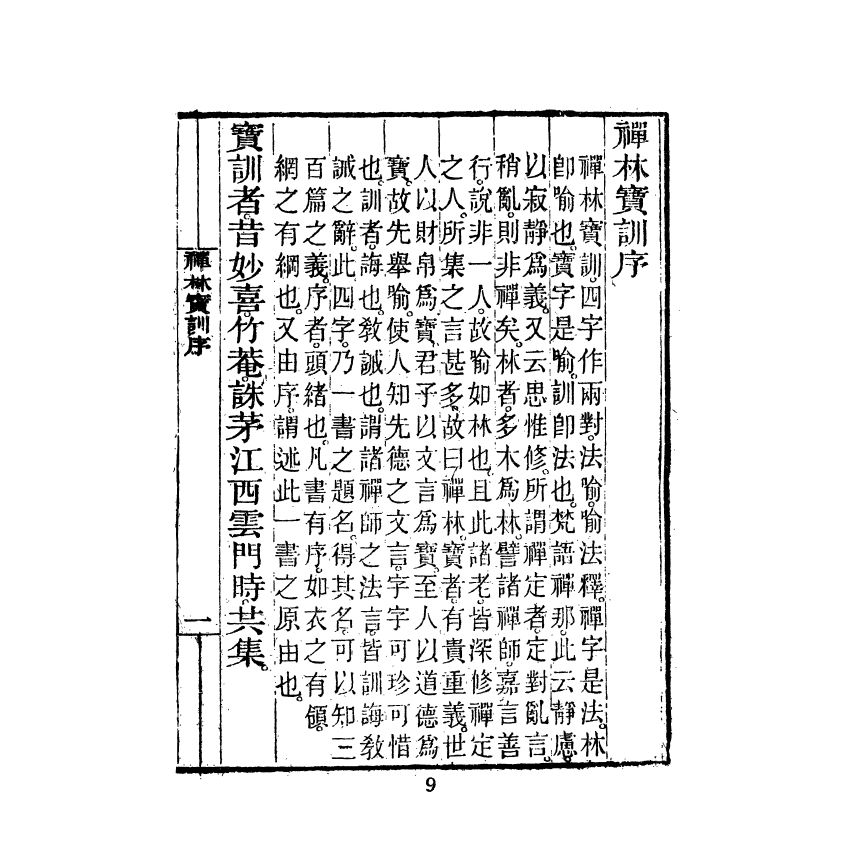 禪林寶訓序
禪林寶訓。四字作兩對。法喻。喻法釋。禪字是法。林
卽喻也。寶字是喻。訓卽法也。梵語禪那。此云靜慮。
以寂靜爲義。又云思惟修。所謂禪定者。定對亂言。
稍亂。則非禪矣。林者。多木爲林。譬諸禪師。嘉言善
行。說非一人。故喻如林也。且此諸老。皆深修禪定
之人。所集之言甚多。故曰禪林。寶者。有貴重義。世
人以財帛爲寶。君子以文言爲寶。至人以道德爲
寶。故先舉喻。使人知先德之文言。字字可珍可惜
也。訓者。誨也。敎誡也。謂諸禪師之法言。皆訓誨敎
誡之辭。此四字。乃一書之題名。得其名。可以知三
百篇之義。序者。頭緒也。凡書有序。如衣之有領。
網之有綱也。又由序。謂述此一書之原由也。
寶訓者。昔妙喜。竹菴。誅茅江西雲門時。共集。
禪林寶訓序
一
9